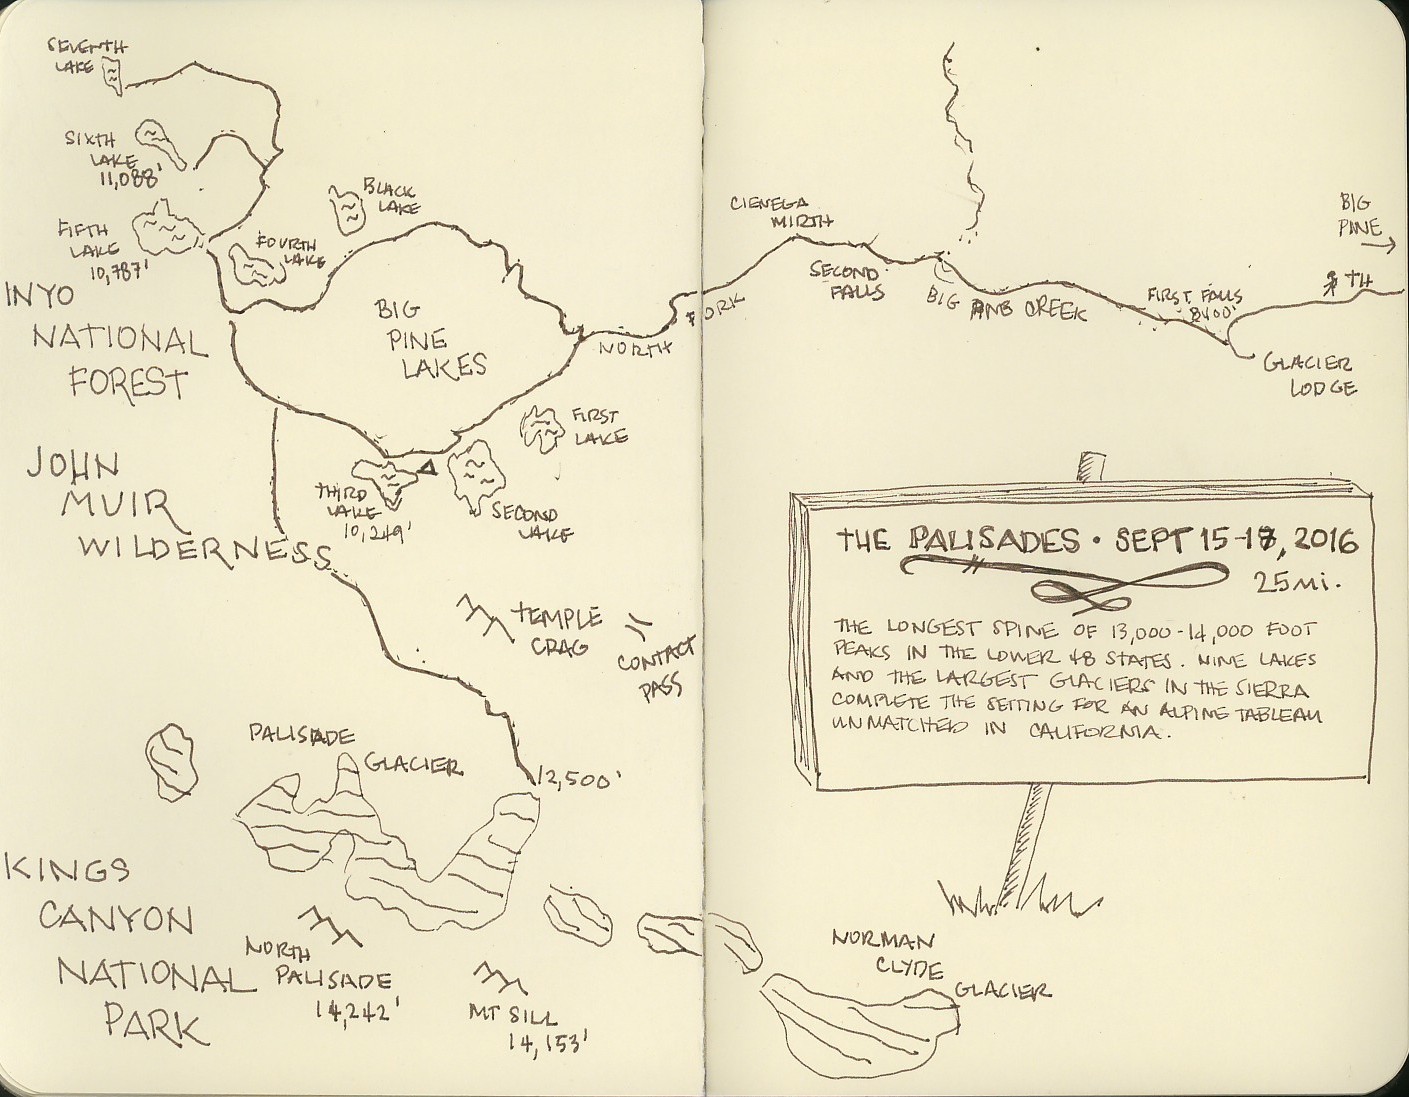 SEVENTH
LAKE
SIXTH
LAKE
11,088'
FIFTH
LAKE
10,787'
FOURTH
LAKE
BLACK
LAKE
INYO
NATIONAL
FOREST
BIG
PINE
LAKES
NORTH FORK BIG PINE CREEK
CIENEGA
MIRTH
SECOND
FALLS
FIRST FALLS
8400'
BIG
PINE
TH
GLACIER
LODGE
FIRST
LAKE
SECOND
LAKE
THIRD
LAKE
10,249'
JOHN
MUIR
WILDERNESS
TEMPLE
CRAG
CONTACT
PASS
PALISADE
GLACIER
12,500'
KINGS
CANYON
NATIONAL
PARK
NORTH
PALISADE
14,242'
MT SILL
14,153'
THE PALISADES • SEPT 15-18, 2016
25 MI.
THE LONGEST SPINE OF 13,000-14,000 FOOT
PEAKS IN THE LOWER 48 STATES. NINE LAKES
AND THE LARGEST GLACIERS IN THE SIERRA
COMPLETE THE SETTING FOR AN ALPINE TABLEAU
UNMATCHED IN CALIFORNIA.
NORMAN
CLYDE
GLACIER